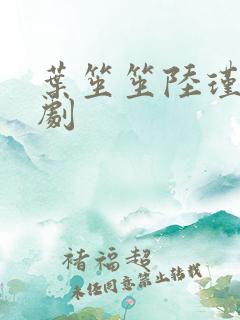 葉笙笙陸瑾
劇
褚福超
未经同意禁止转载